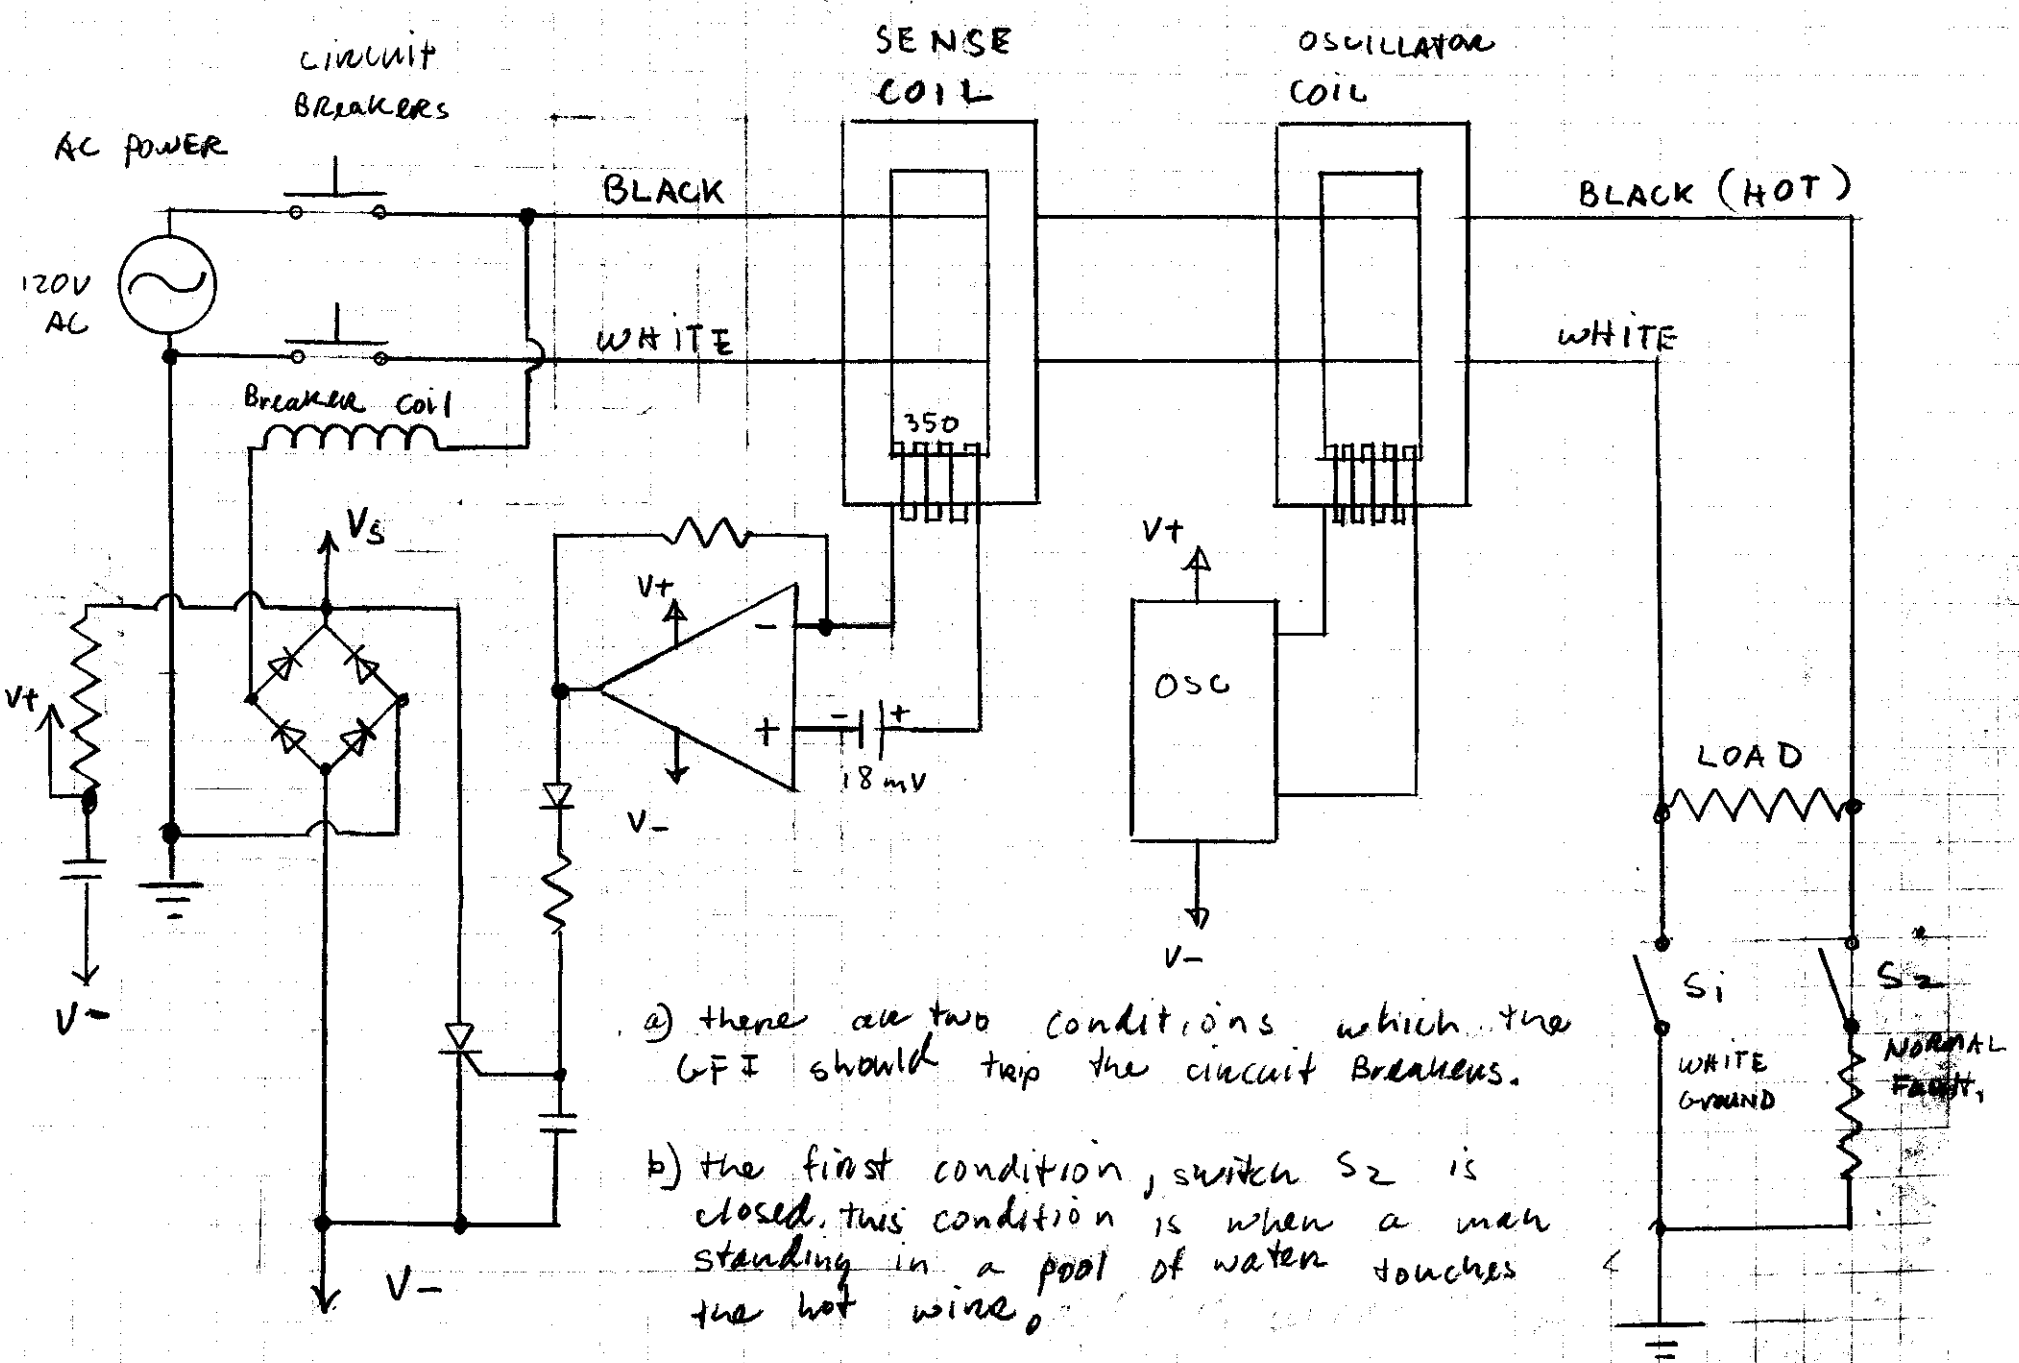 CIRCUIT
BREAKERS
SENSE
COIL
OSCILLATOR
COIL
AC POWER
BLACK
BLACK (HOT)
120V
AC
WHITE
WHITE
Breaker Coil
350
Vs
V+
V+
V+
OSC
-
+
- +
18mV
LOAD
V-
V-
V-
S1
S2
WHITE
GROUND
NORMAL
Fault,
a) there are two conditions which the
GFI should trip the circuit Breakers.
b) the first condition, switch S2 is
closed. this condition is when a man
standing in a pool of water touches
the hot wire.
V-